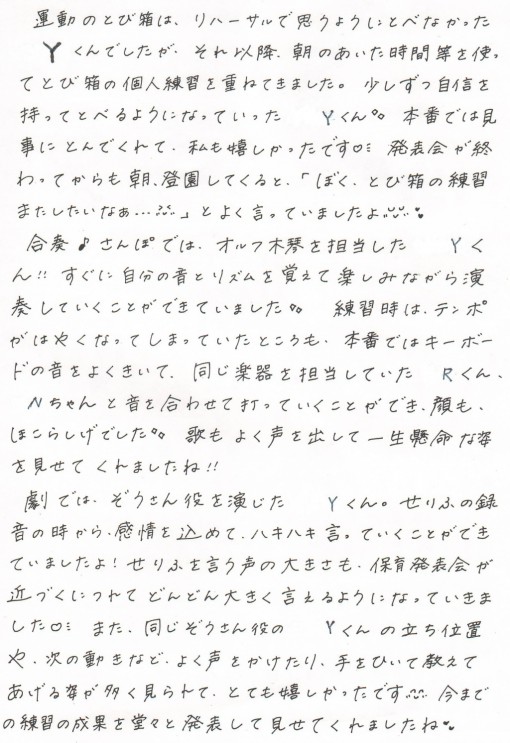 運動のとび箱は、リハーサルで思うようにとべなかった
Yくんでしたが、それ以降、朝のあいた時間等を使っ
てとび箱の個人練習を重ねてきました。少しずつ自信を
持ってとべるようになっていった Yくん。本番では見
事にとんでくれて、私も嬉しかったです♡ 発表会が終
わってからも朝、登園してくると、「ぼく、とび箱の練習
またしたいなぁ…」とよく言っていましたよ♥
合奏♪さんぽでは、オルフ木琴を担当した Yく
ん!! すぐに自分の音とリズムを覚えて楽しみながら演
奏していくことができていました。 練習時は、テンポ
がはやくなってしまっていたところも、本番ではキーボー
ドの音をよくきいて、同じ楽器を担当していた Rくん、
Nちゃんと音を合わせて打っていくことができ、顔も、
ほこらしげでした。 歌もよく声を出して一生懸命な姿
を見せてくれましたね!!
劇では、ぞうさん役を演じた Yくん。せりふの録
音の時から、感情を込めて、ハキハキ言っていくことができ
ていましたよ! せりふを言う声の大きさも、保育発表会が
近づくにつれてどんどん大きく言えるようになっていきま
した♡ また、同じぞうさん役の Yくんの立ち位置
や、次の動きなど、よく声をかけたり、手をひいて教えて
あげる姿が多く見られて、とても嬉しかったです 今まで
の練習の成果を堂々と発表して見せてくれましたね♥